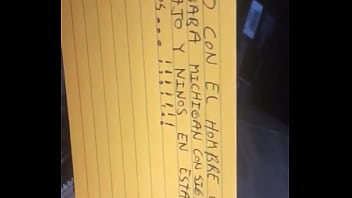 O CON EL HOMBRE
PARA MICHIGAN CONSIG
AJO Y NINOS EN ESTA
OS... !!!!!!!